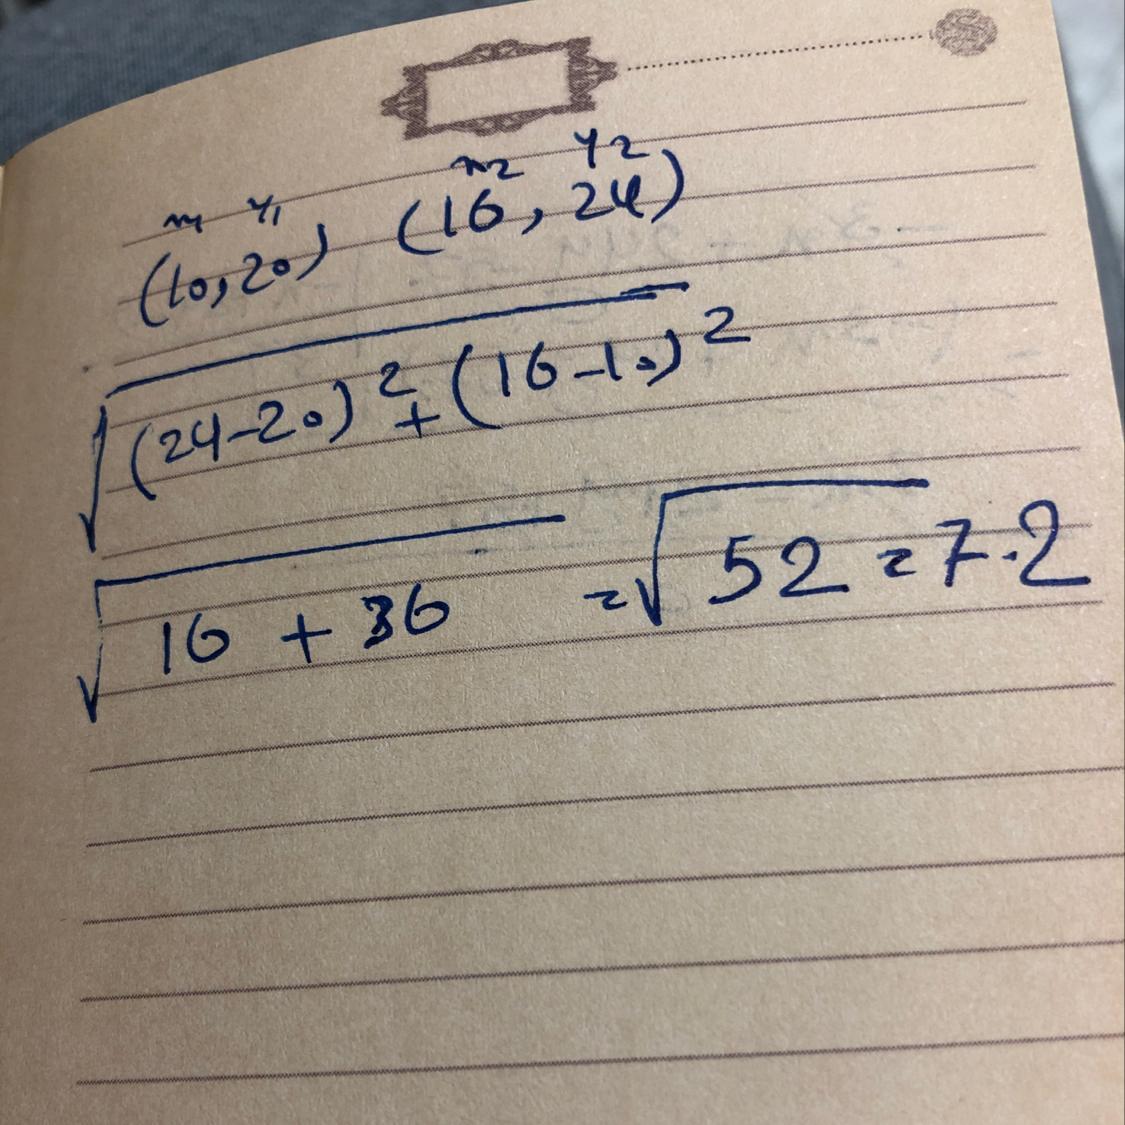 x1 y1 x2 y2
(10,20) (16,24)
√(24-20)² + (16-10)²
√16 + 36 = √52 = 7.2